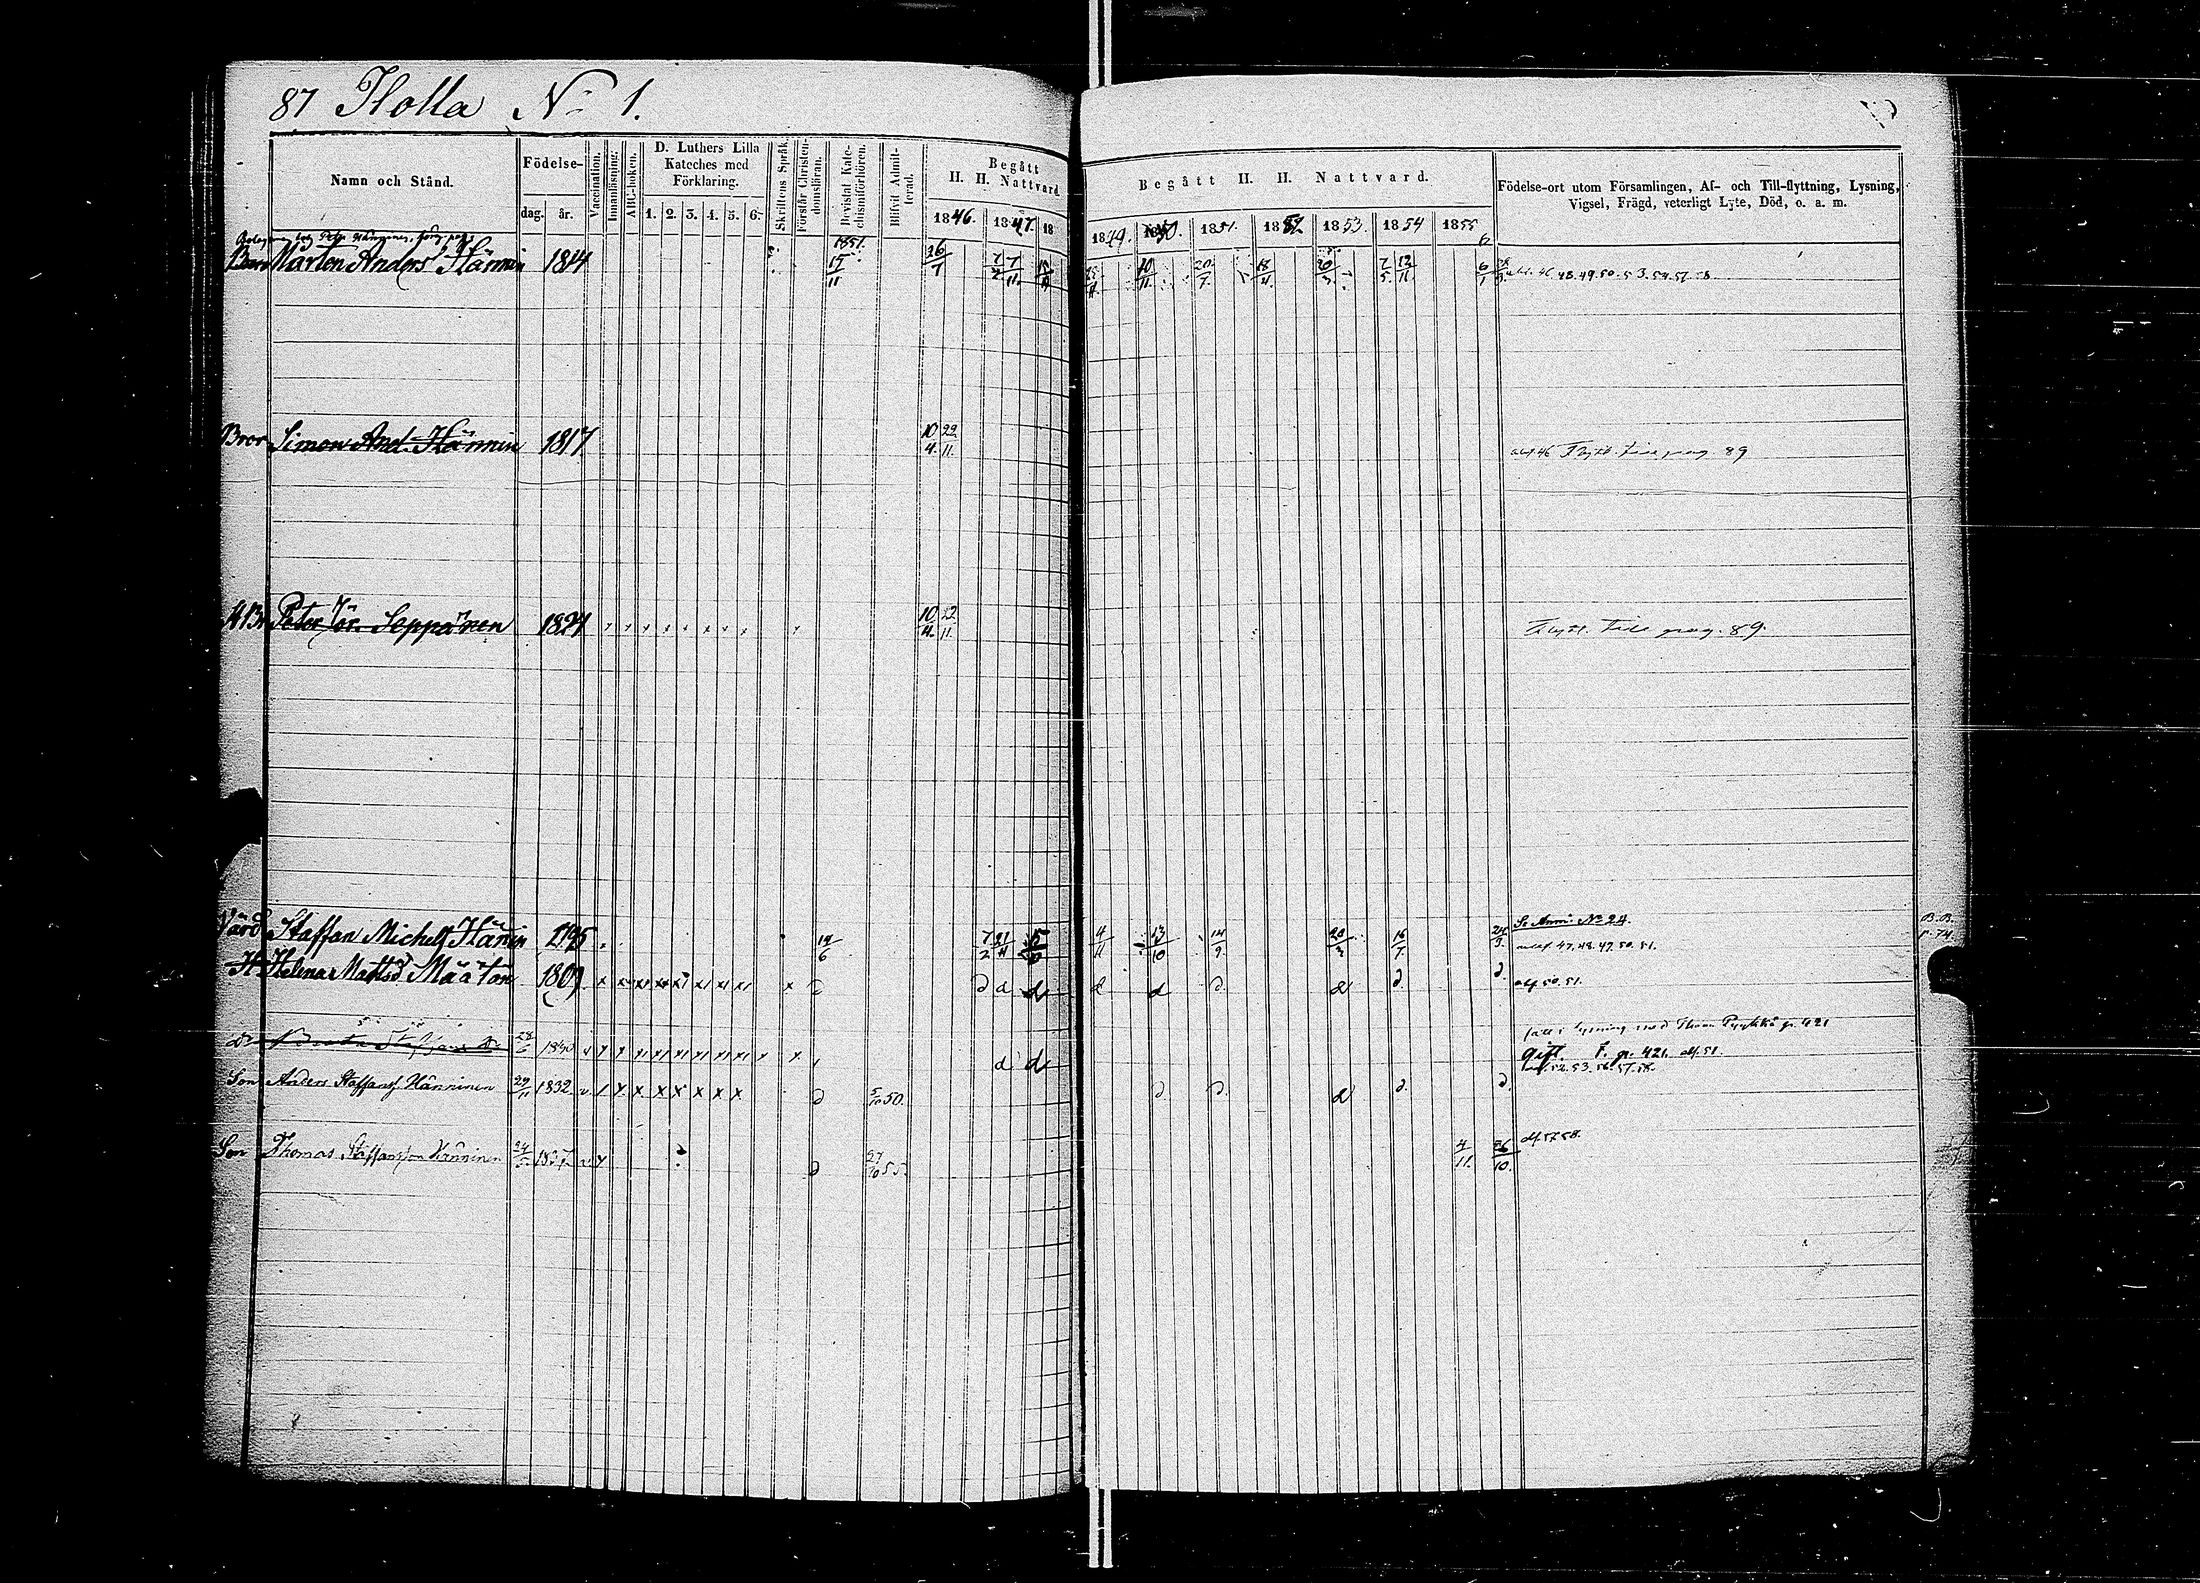 87 Holla No 1.
Namn och Stånd.
Födelse-
dag. år.
Vaccination.
Innanläsning.
ABC-boken.
D. Luthers Lilla
Kateches med
Förklaring.
1. 2. 3. 4. 5. 6.
Skriftens Språk.
Förstår Christen-
domsläran.
Bevistat Kate-
chismiförhören.
Blifvit Admit-
terad.
Begått
H. H. Nattvard
1846. 1847. 18
Begått H. H. Nattvard.
1849. 1850. 1851. 1852. 1853. 1854 1855
Födelse-ort utom Församlingen, Af- och Till-flyttning, Lysning,
Vigsel, Frägd, veterligt Lyte, Död, o. a. m.
1851.
Mårten Anders Hännin 1814 15/11 26/7 7/2 7/11 10/11 20/7 18/4 20/3 7/5 12/11 6/1
46 48.49.50.53.54.57.58
Bror Simon And. Hännin 1817 10/4. 22/11. Flytt. till pag. 89
Peter Jör. Seppänen 1824 10/4. 22/11. Flytt. till pag. 89.
Värd Staffan Michelss Hänin 1795 14/6 7/2 21/11 4/11 13/10 14/9. 20/3 16/7. 24/9.
Se Anm: No 24.
47.48.49.50.51.
B.B.
p. 74.
H. Helena Mattsd Määttän 1809 x x x x x x x x x d d d d d d d. d d. d. abs. 50.51.
Brita Staffans Dr 28/6 1830 d d
lysning med Thom Pyykkö p. 421
gift. F. p. 421. abs. 51
52.53.56.57.58
Son Anders Staffanss Hänninen 29/11 1832 v. d 5/10 50. d d. d d. d.
Son Thomas Staffansson Hänninen 1837 v d 27/10 55. 4/11. 26/10. abs. 57 58.